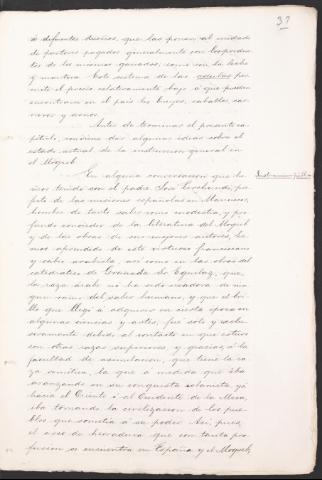 37
de diferentes dueños, que las ponen al cuidado
de pastores pagados generalmente con los produc-
tos de los mismos ganados, como son la leche
y manteca. Este sistema de las
mite el precio relativamente bajo á que pueden
encontrarse en el país los bueyes, caballos, car-
neros y asnos.
Antes de terminar el presente ca-
pítulo, conviene dar algunas ideas sobre el
estado actual de la instruccion general en
el Mogreb.
Instruccion pública
En alguna conversacion que he-
mos tenido con el padre José Lerchundi, pre-
fecto de las misiones españolas en Marruecos,
hombre de tanto saber como modestia, y pro-
fundo conocedor de la literatura del Mogreb
y de las obras de sus mejores autores, he-
mos aprendido de este virtuoso franciscano
y sabio arabista, así como en las obras del
catedrático de Granada Sr Eguilaz, que
la raza árabe no ha sido creadora de nin-
gun ramo del saber humano, y que el bri-
llo que llegó á adquirir en cierta época en
algunas ciencias y artes, fué solo y exclu-
sivamente debido al contacto en que estuvo
con otras razas superiores y gracias á la
facultad de asimilacion, que tiene la ra-
za semítica, la que á medida que iba
avanzando en su conquista islamita, ya
hacia el Oriente ó al Occidente de la Meca,
iba tomando la civilizacion de los pue-
blos que sometía á su poder. Así, pues,
el arco de herradura que con tanta pro-
fusion se encuentra en España y el Mogreb,